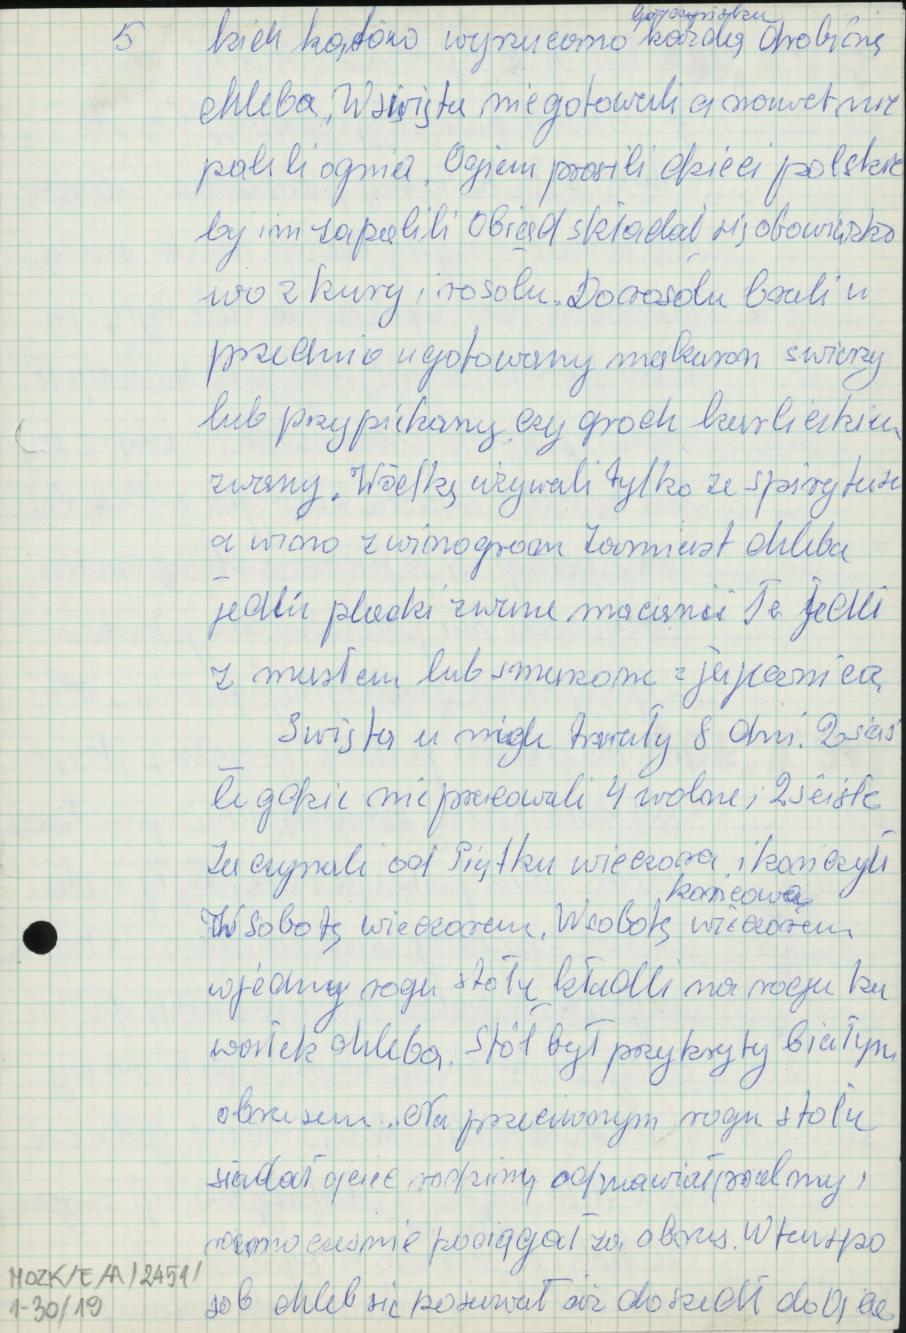 5
kich kątów wyrzucano każdą drobinę
chleba. W święta nie gotowali a nawet nie
palili ognia. Ogień prosili dzieci polskie
by im zapalili Obiad składał się obowiązko
wo z kury i rosołu. Do rosołu brali u
przednio ugotowany makaron swieży
lub przypiekany, czy groch
zwany. Wódkę używali tylko ze spirytusu
a wino z winogron zamiast chleba
jedli placki zwane Te jedli
z masłem lub smakowe z jajecznicą
Swięta u nich trwały 8 dni. 2 sciś
łe gdzie nie pracowali 4 wolne i 2 ściste
Zaczynali od Piątku wieczora i kończyli
końcową
W Sobotę wieczorem. W sobotę wieczorem
w jednym rogu stołu kładli na rogu ka
wałek chleba. Stół był przykryty białym
obrusem. Na przeciwnym rogu stołu
siadał ojciec rodziny odmawiał psalmy i
równocześnie pociągał za obrus. W ten spo
sób chleb się posuwał aż doszedł do Ojca
MOZK/E/A/2451/
1-30/19